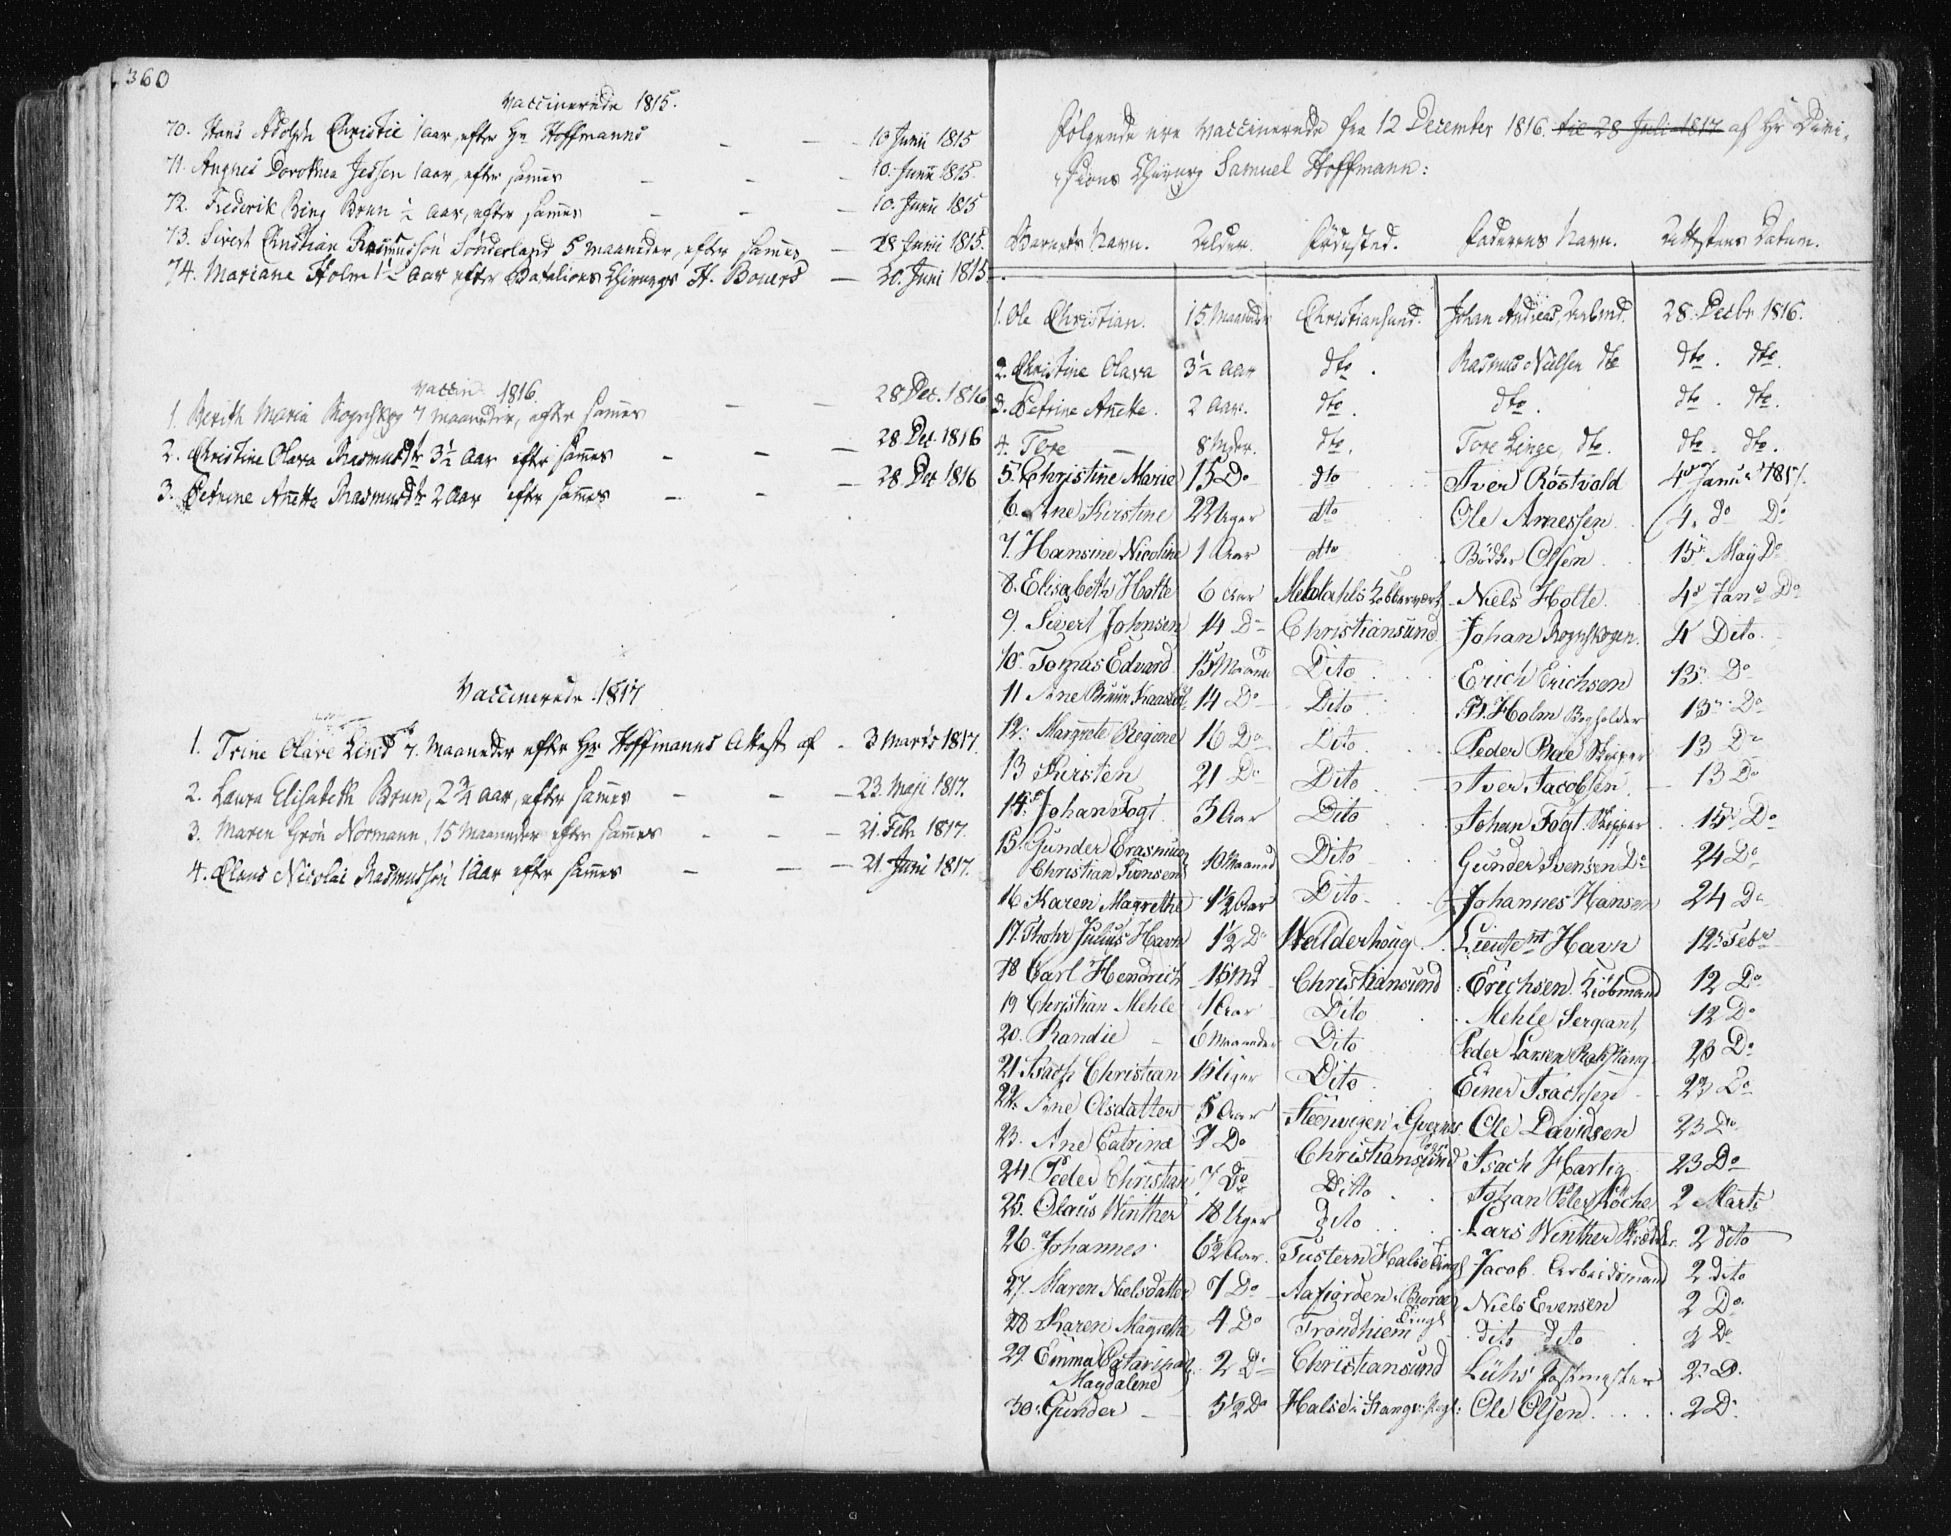 360
Vaccinerede 1815.
70. Hans Adolph Christie 1 aar, efter Hr Hoffmanns - - - 10 Junii 1815
71. Angnes Dorothea Jessen 1 aar, efter sammes - - - 10. Junii 1815
72. Frederik Bing Brun ½ aar, efter sammes - - - 10. Junii 1815
73. Sivert Christian Rasmussøn Sønderland 5 maaneder, efter sammes - 28 Junii 1815.
74. Mariane Holm 1½ aar efter Batalions Chirurgs H. Bouers - 30. Juni 1815.
Vaccin. 1816.
1. Berith Maria Rognskog 7 maaneder, efter sammes - - 28 Dec. 1816
2. Christine Olava Rasmusdtr 3½ aar efter sammes - - - 28 Dec. 1816
3. Petrine Anette Rasmusdtr 2 aar efter sammes - - - 28 Dec 1816
Vaccinerede 1817
1. Trine Olave Lind 7. Maaneder efter Hr Hoffmanns Attest af - 3 Marts 1817.
2. Laura Elisabeth Brun, 2¾ aar, efter sammes - - - 23. Maji 1817.
3. Maren Grøn Normann, 15 Maaneder efter sammes - - - 21. Febr. 1817.
4. Claus Nicolai Rasmussøn 1 Aar efter sammes - - - 21 Juni 1817.
Følgende ere vaccinerede fra 12 December 1816 til 28 Juli 1817 af Hr Divi-
sions Chirurg Samuel Hoffmann:
Barnets Navn. Alder. Fødested. Faderens Navn. Attestens Datum.
1. Ole Christian. 15. Maaneder Christiansund. Johan Andreas, Arbmd. 28. Decbr 1816.
2. Christine Olava 3½ Aar dto. Rasmus Nielsen dto dto. dto.
3. Petrine Anette. 2 Aar. dto. dto. dto. dto.
4. Tore - 8 Mdr. dto. Tore Linge, dto. dto. dto.
5. Christine Marie 15 Do dto Iver Röstvold 4de Januar 1817.
6. Ane Kirstine 22 Uger dto Ole Arnessen 4. do Do
7. Hansine Nicoline 1 Aar dto Bödker Olsen 15. May Do
8. Elisabeth Holte 6 Aar Meldahls Kobberværk Niels Holte. 4de Janu Do
9. Sivert Johnsen 14 Do Christiansund Johan Rognskogen. 4 Dito.
10. Tomas Edvard 15 Maaned Dito Erich Erichsen 13. Do
11 Ane Bruun 14 Do Dito Holm Bogholder 13. Do
12. Margrete Regine 16 Do Dito Peder Skipper 13 Do
13 Kersten 21 Do Dito Iver Jacobsen. 13 Do
14. Johan Fogt. 3 Aar Dito Johan Fogt. Skipper 15. Do
15. Gunder Erasmus
Christian Svensen 10 Maaned Dito Gunder Svensen Do 24 Do
16 Karen Magrethe 1½ Aar Dito Johannes Hansen 24 Do
17. Julius Havn 1½ Do Valderhoug Lieutent Havn 12. Febr
18 Carl Hendrich 16 Md Christiansund Erichsen. Kiöbmand 12 Do
19 Christian Mehle 1 Aar Dito Mehle Sergeant 12 Do
20. Randie - 6 Maaneder Dito Peder Larsen 23 Do
21 Isach Christian Uger Dito Einer Isachsen 23 Do
22. Ane Olsdatter 5 Aar Ole Davidsen 23 Do
23. Ane Catrina 7 Do Christiansund Isach Hartig 23 Do
24 Peder Christian 7 Do Ditto Johan Peter 2 Marti
25. Olaus Winther 18 Uger Dito Lars Winther 2 dito
26. Johannes 6½ Aar. Tustern Halse Jacob Arbeidsmand 2 dito
27. Maren Nielsdatter 7 Do Aafiorden Niels Evensen 2 Do
28 Karen Magrethe 4 Do Trondhiem dito dito 2 Do
29. Emma Catarina
Magdalene 2 Do Christiansund Lühs Postmester 2. D.
30. Gunder - 5½ Do Halse Ole Olsen. 2 D.